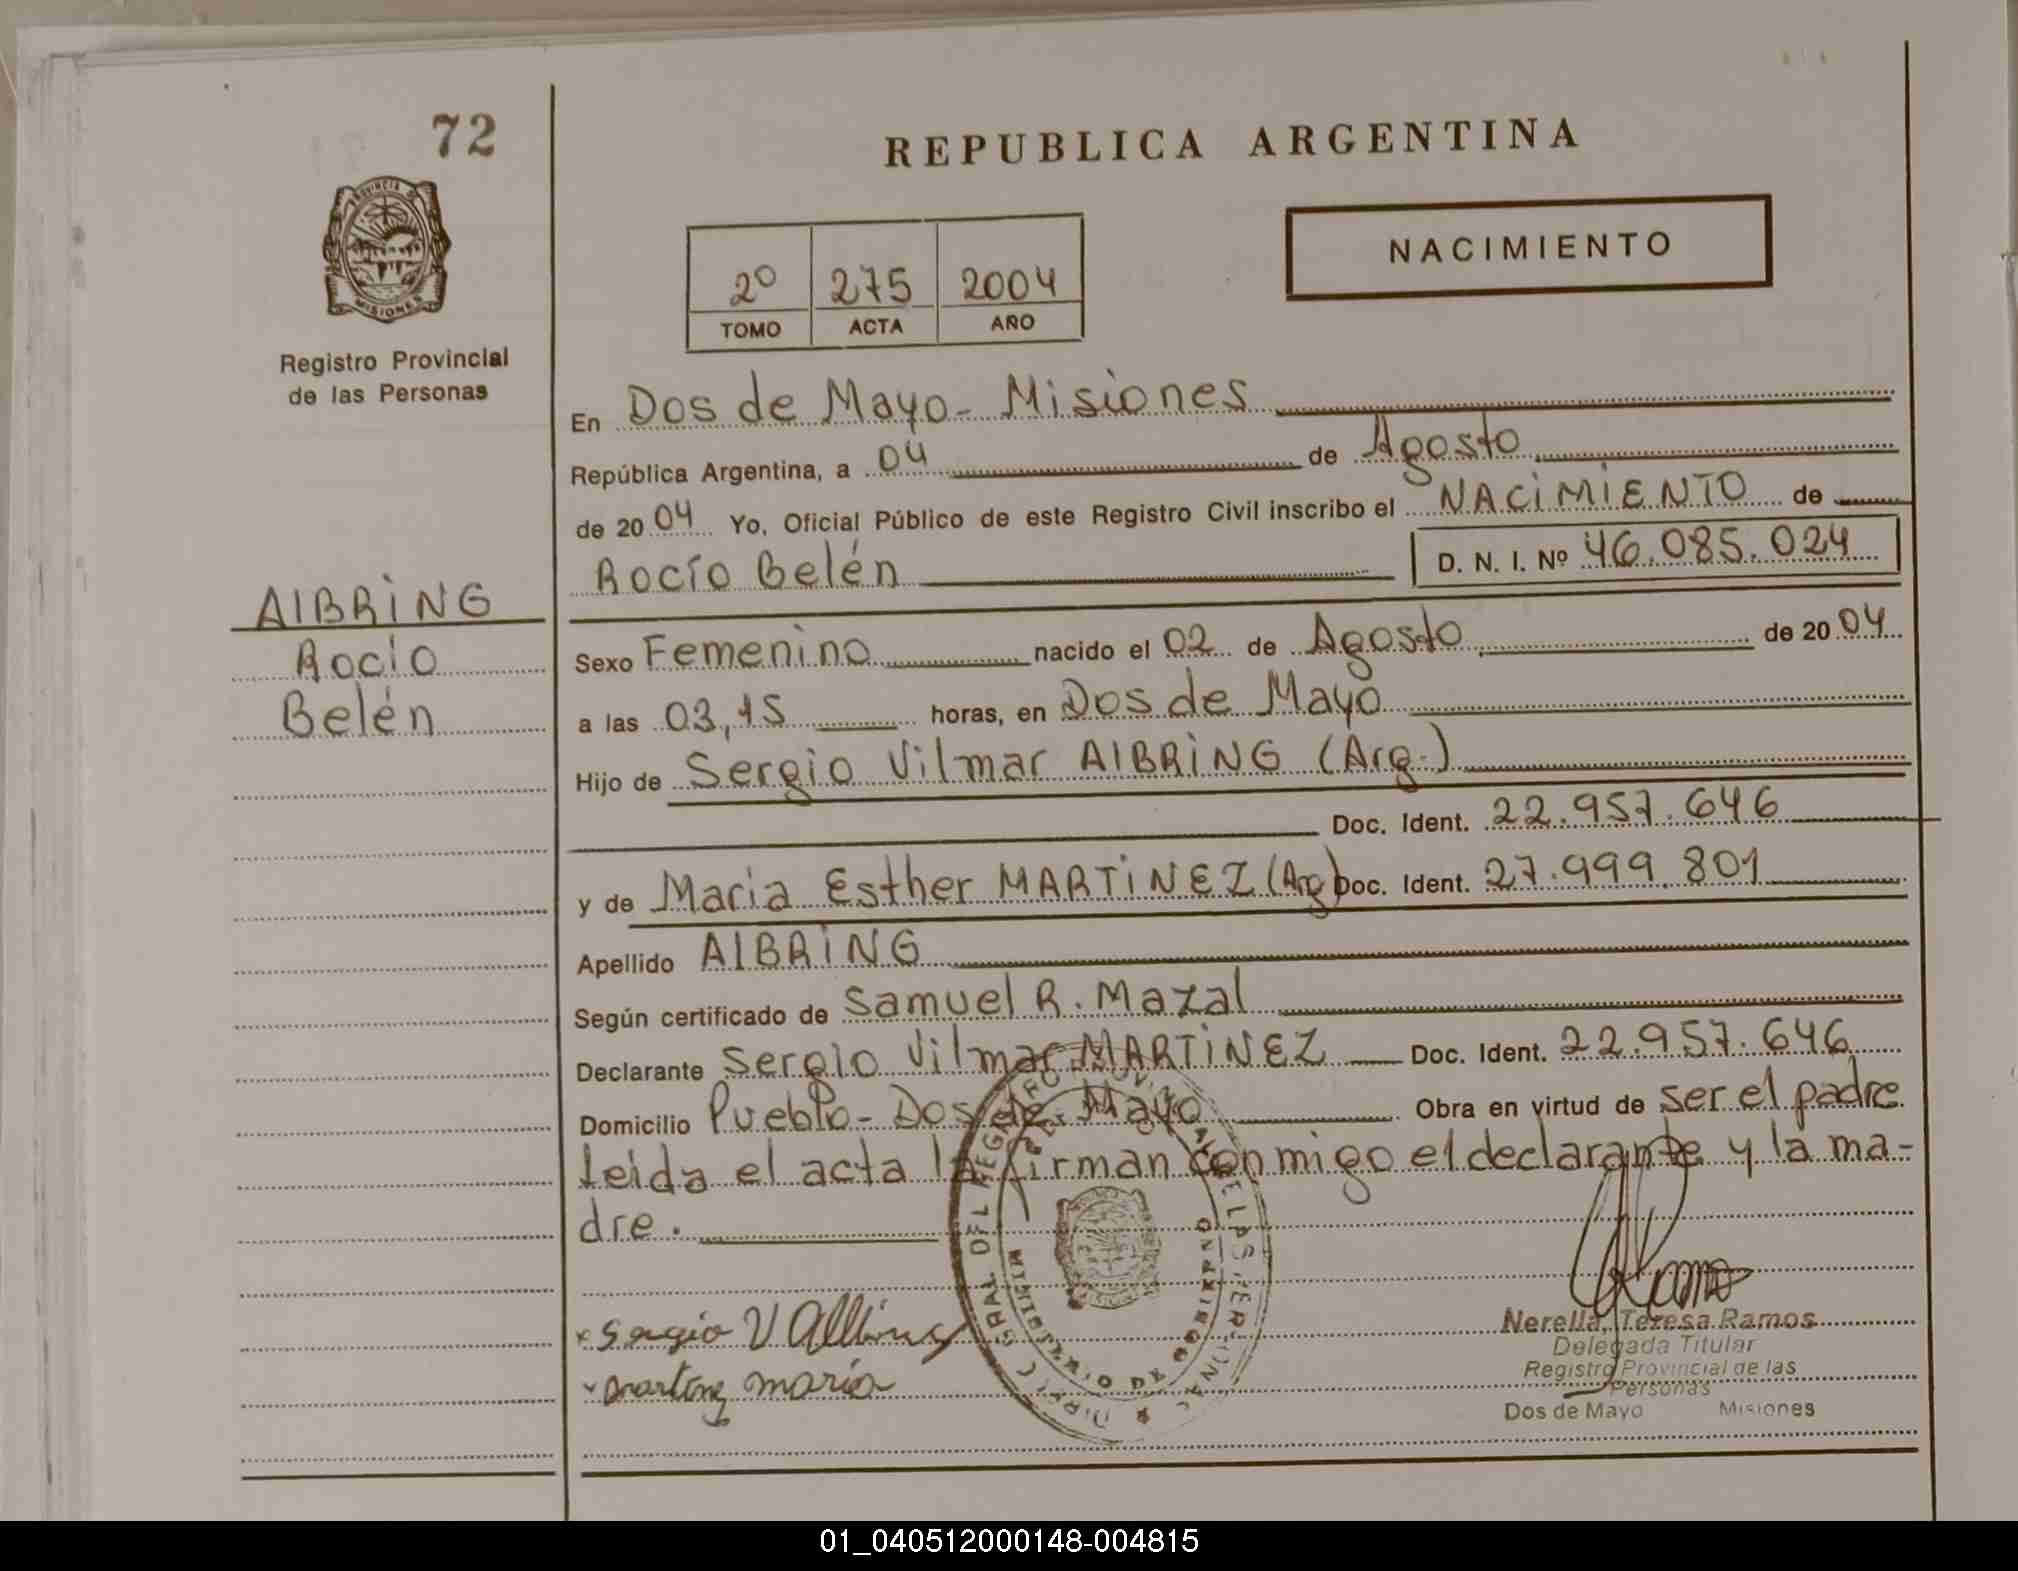 72
REPUBLICA ARGENTINA
PROVINCIA DE
MISIONES
Registro Provincial
de las Personas
2º 275 2004
TOMO ACTA AÑO
NACIMIENTO
En Dos de Mayo - Misiones
República Argentina, a 04 de Agosto
de 20 04 Yo, Oficial Público de este Registro Civil inscribo el NACIMIENTO de
Rocío Belén D. N. I. Nº 46.085.024
AlBRiNG
Rocío
Belén
Sexo Femenino nacido el 02 de Agosto de 20 04
a las 03,15 horas, en Dos de Mayo
Hijo de Sergio Vilmar AlBRiNG (Arg.)
Doc. Ident. 22.957.646
y de Maria Esther MARTiNEZ (Arg) Doc. Ident. 27.999.801
Apellido AlBRiNG
Según certificado de Samuel R. Mazal
Declarante Sergio Vilmar MARTiNEZ Doc. Ident. 22.957.646
Domicilio Pueblo - Dos de Mayo Obra en virtud de ser el padre
Leida el acta la firman conmigo el declarante y la ma-
dre.
x Sergio V Albring
Martinez maria
Nerella Teresa Ramos
Delegada Titular
Registro Provincial de las
Personas
Dos de Mayo Misiones
01_040512000148-004815